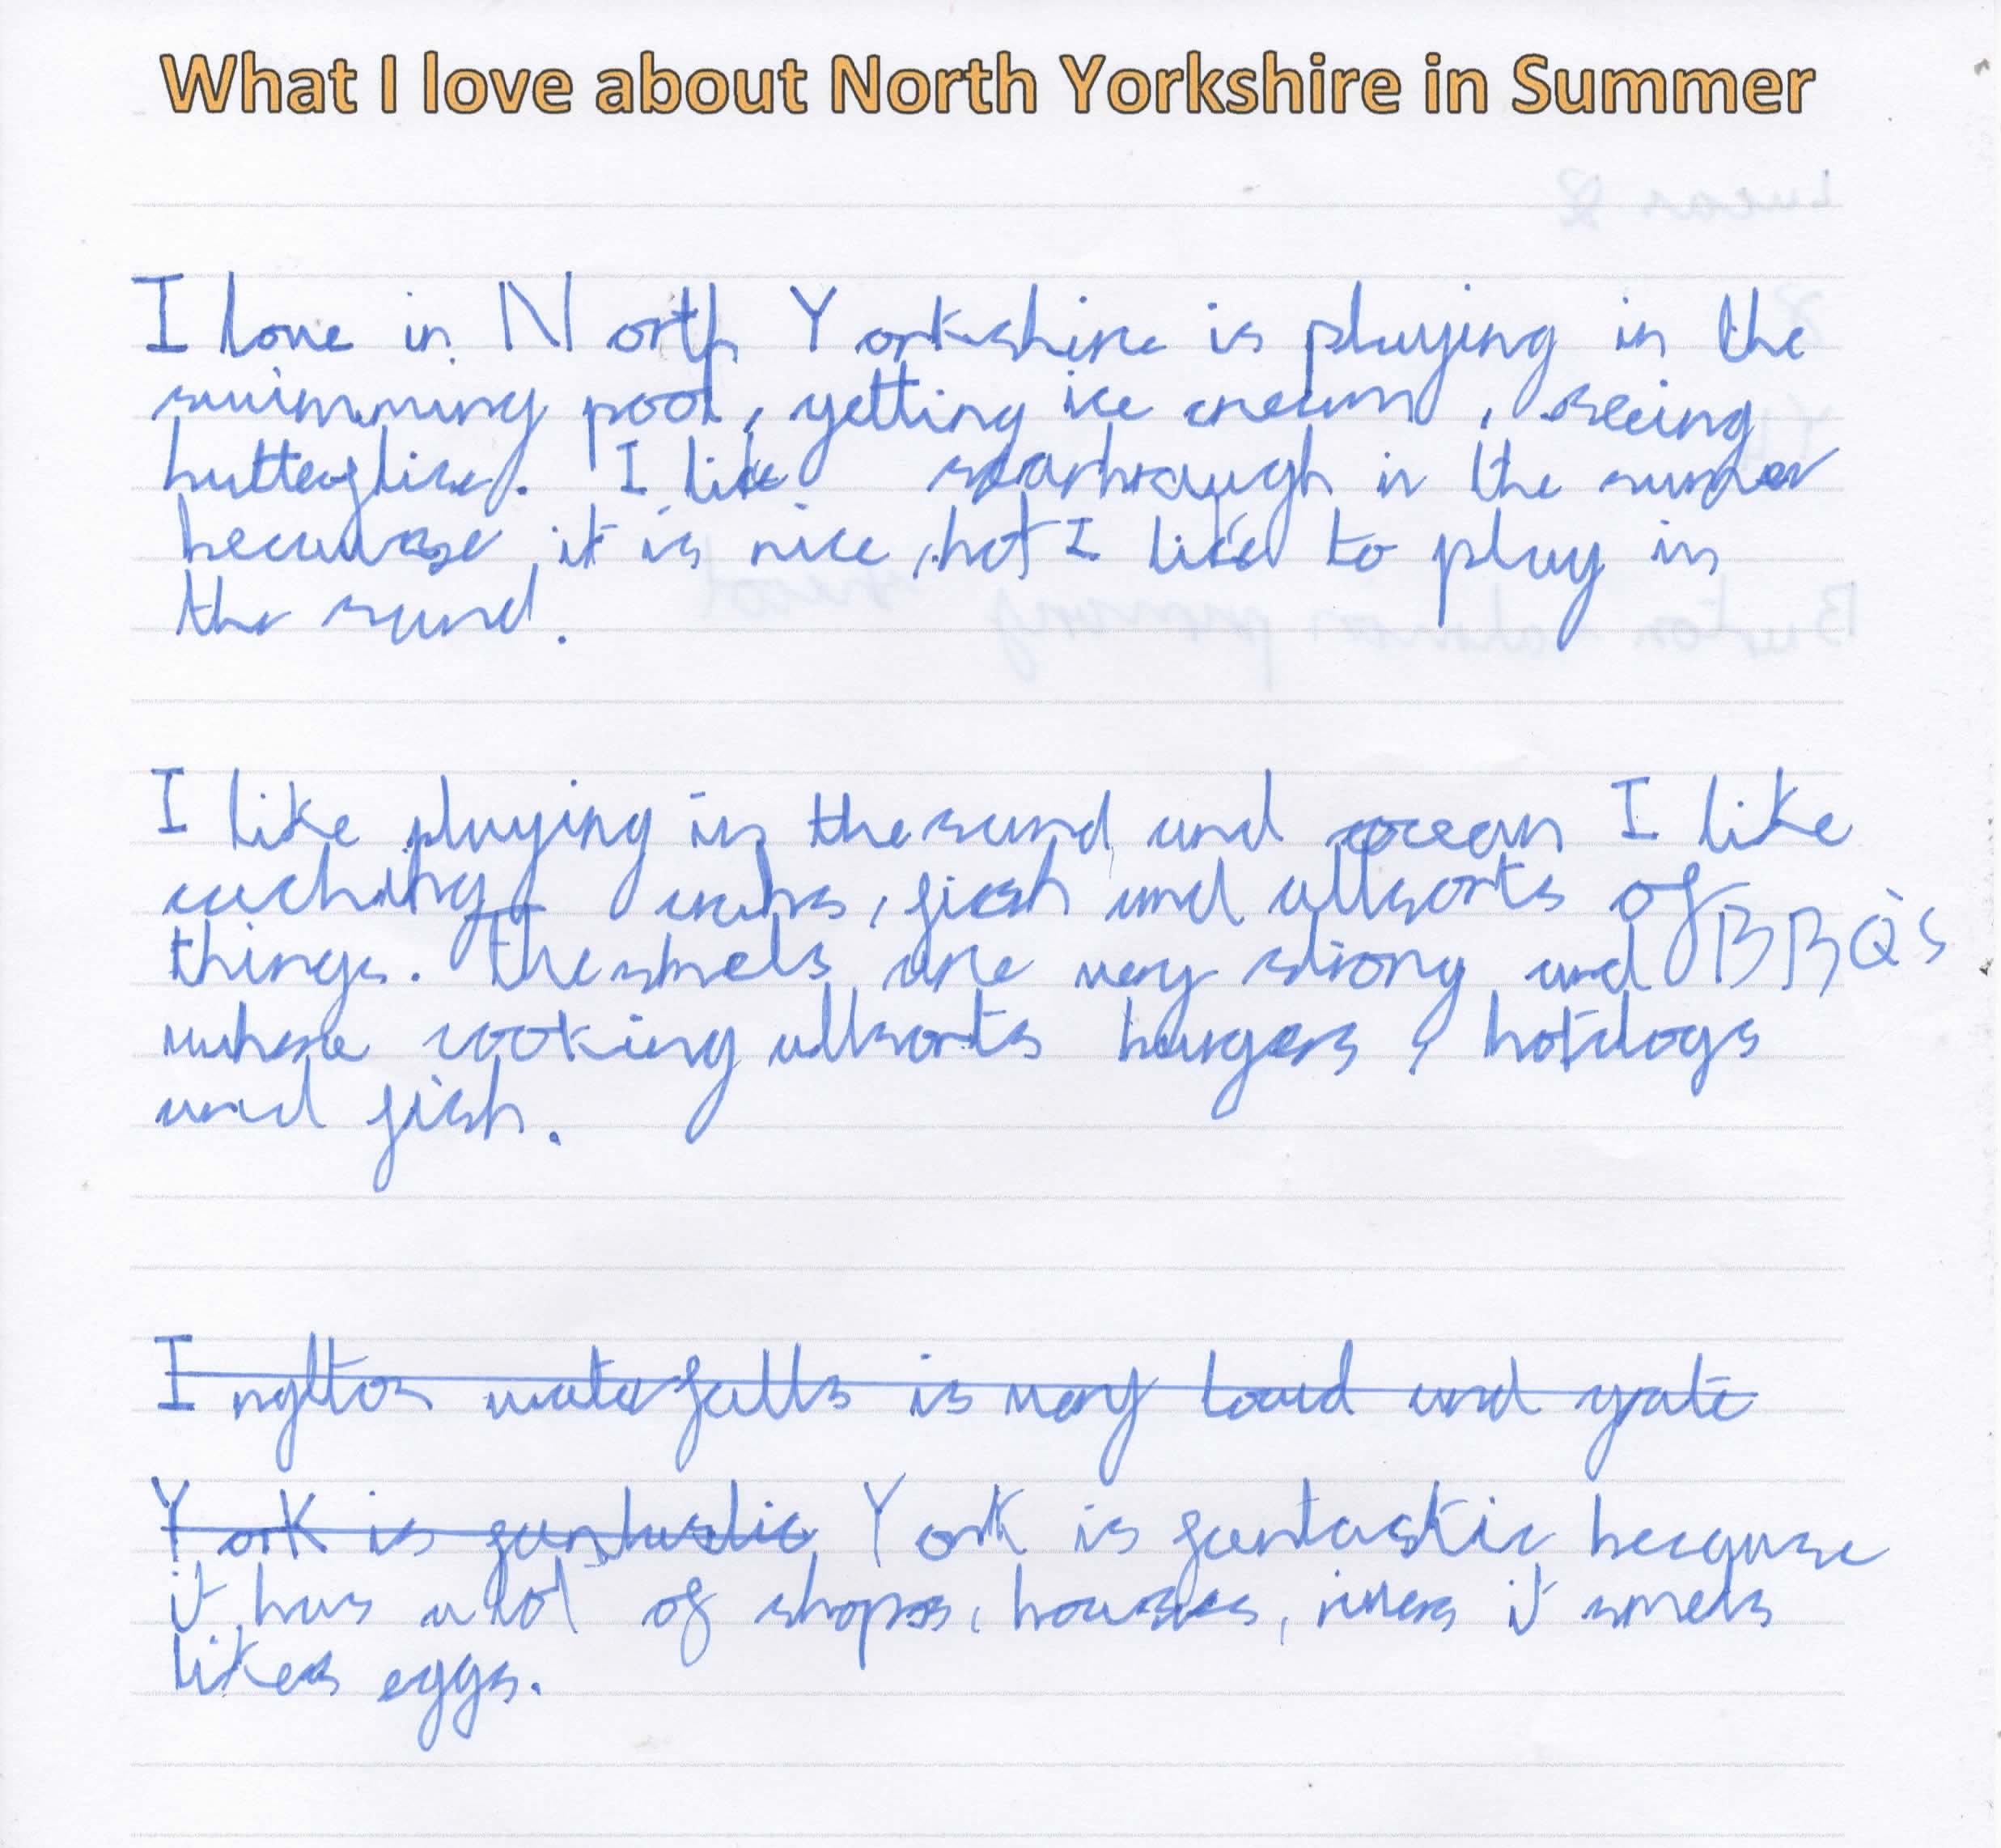 What I love about North Yorkshire in Summer
I love in North Yorkshire is playing in the
swimming pool, getting ice cream, seeing
butterflies. I like scarbrough in the summer
because it is nice, hot I like to play in
the sand.
I like playing in the sand and ocean I like
caching crabs, fish and allsorts of
things. The smels are very strong and BBQ's
where cooking allsorts burgers, hotdogs
and fish.
Inglton waterfalls is very loud and grate
York is fantastic York is fantastic because
it has a lot of shops, houses, rivers it smels
likes eggs.